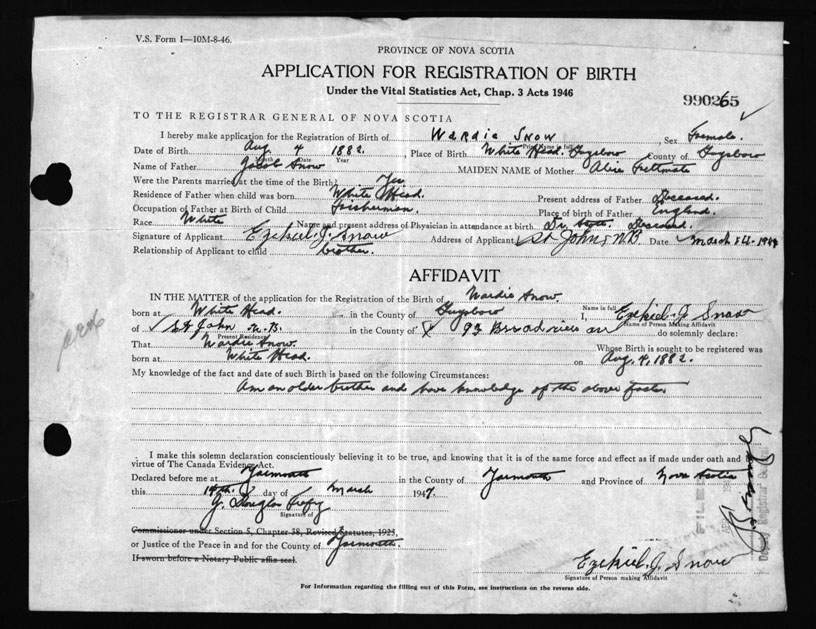 V.S. Form 1—10M-8-46.
PROVINCE OF NOVA SCOTIA
APPLICATION FOR REGISTRATION OF BIRTH
Under the Vital Statistics Act, Chap. 3 Acts 1946
990265
TO THE REGISTRAR GENERAL OF NOVA SCOTIA
I hereby make application for the Registration of Birth of Wardie Snow, Sex Female.
Print Name in full
Date of Birth Aug 4 1882, Place of Birth White Head, Guysboro County of Guysboro
Month Date Year
Name of Father Jacob Snow MAIDEN NAME of Mother Alice
Were the Parents married at the time of the Birth? Yes
Residence of Father when child was born White Head. Present address of Father Deceased.
Occupation of Father at Birth of Child Fisherman. Place of birth of Father England.
Race White Name and present address of Physician in attendance at birth Dr. Deceased.
Signature of Applicant Ezekiel J. Snow Address of Applicant St John, N.B. Date March 14-194
Relationship of Applicant to child brother.
AFFIDAVIT
IN THE MATTER of the application for the Registration of Birth of Wardie Snow.
Name in full
born at White Head. in the County of Guysboro I, Ezekiel J Snow
Name of Person Making Affidavit
of St John N.B. in the County of 93 Broadview do solemnly declare:
Present Residence
That Wardie Snow. Whose Birth is sought to be registered was
born at White Head. on Aug. 4, 1882.
My knowledge of the fact and date of such Birth is based on the following Circumstances:
Am an older brother and have knowledge of the above facts.
I make this solemn declaration conscientiously believing it to be true, and knowing that it is of the same force and effect as if made under oath and
virtue of The Canada Evidence Act.
Declared before me at Yarmouth in the County of Yarmouth and Province of Nova Scotia
this 14th day of March 1947.
Signature of
Commissioner under Section 5, Chapter 38, Revised Statutes, 1923,
or Justice of the Peace in and for the County of Yarmouth.
If sworn before a Notary Public affix seal.
Ezekiel J. Snow
Signature of Person making Affidavit
FILED
Deputy Registrar General
For Information regarding the filling out of this Form, see instructions on the reverse side.